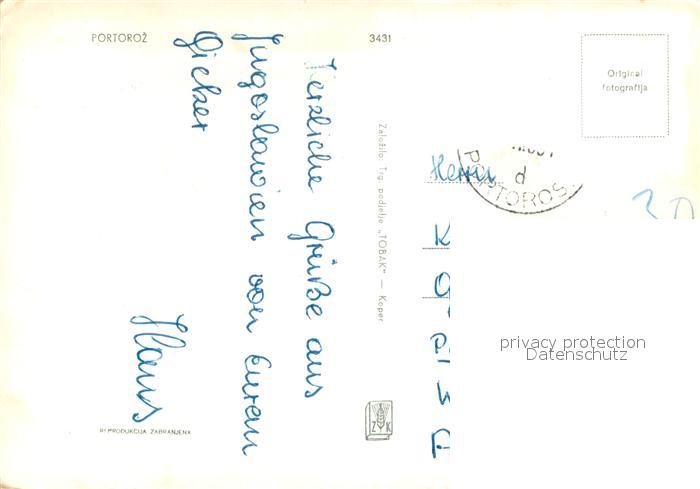 PORTOROŽ
3431
Original
fotografija
Herzliche Grüße aus
Jugoslawien von Eurem
Gicker
Hans
Založilo: Trg. podjetje „TOBAK" — Koper
Z K
REPRODUKCIJA ZABRANJENA
Herrn
PORTOROS
privacy protection
Datenschutz